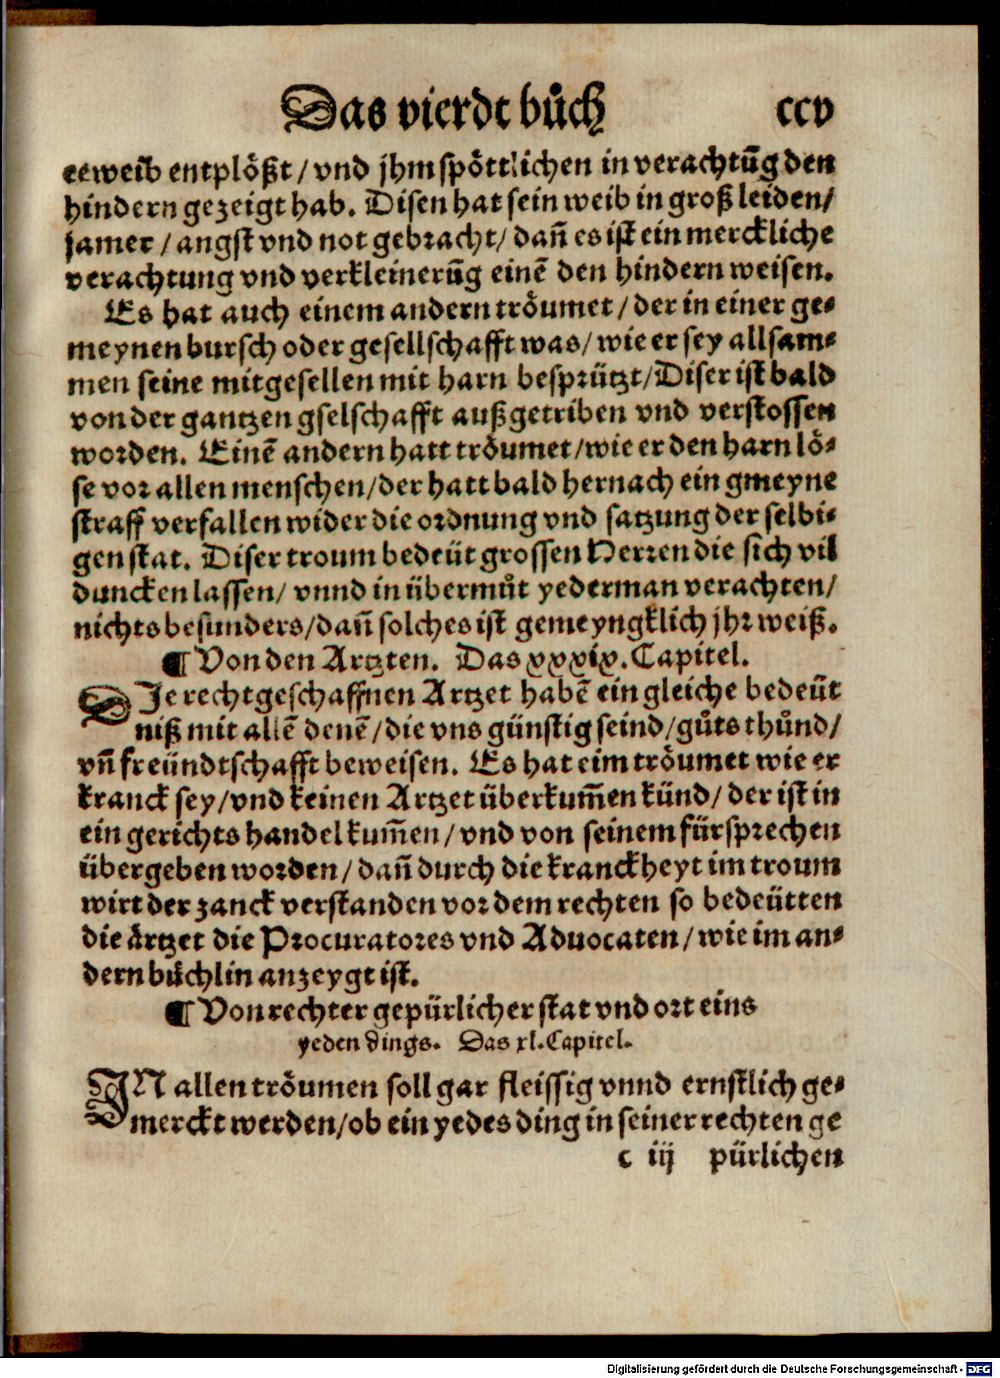 Das vierdt bůch ccv
eeweib entplößt / vnd jhm spöttlichen in verachtũg den
hindern gezeigt hab. Disen hat sein weib in groß leiden /
jamer / angst vnd not gebracht / dañ es ist ein merckliche
verachtung vnd verkleinerũg einē den hindern weisen.
Es hat auch einem andern tröumet / der in einer ge⸗
meynen bursch oder gesellschafft was / wie er sey allsam⸗
men seine mitgesellen mit harn besprützt / Diser ist bald
von der gantzen gselschafft außgetriben vnd verstossen
worden. Einē andern hatt tröumet / wie er den harn lö⸗
se vor allen menschen / der hatt bald hernach ein gmeyne
straff verfallen wider die ordnung vnd satzung der selbi⸗
gen stat. Diser troum bedeüt grossen Herren die sich vil
duncken lassen / vnnd in übermůt yederman verachten /
nichts besunders / dañ solches ist gemeyngklich jhr weiß.
¶ Von den Artzten. Das xxxix. Capitel.
DJe rechtgeschaffnen Artzet habē ein gleiche bedeüt
niß mit allē denē / die vns günstig seind / gůts thůnd /
vñ freündtschafft beweisen. Es hat eim tröumet wie er
kranck sey / vnd keinen Artzet überkum̃en künd / der ist in
ein gerichts handel kum̃en / vnd von seinem fürsprechen
übergeben worden / dañ durch die kranckheyt im troum
wirt der zanck verstanden vor dem rechten so bedeütten
die ärtzet die Procuratores vnd Aduocaten / wie im an⸗
dern bůchlin anzeygt ist.
¶ Von rechter gepürlicher stat vnd ort eins
yeden dings. Das xl. Capitel.
JN allen tröumen soll gar fleissig vnnd ernstlich ge⸗
merckt werden / ob ein yedes ding in seiner rechten ge
c iij pürlichen
Digitalisierung gefördert durch die Deutsche Forschungsgemeinschaft - DFG